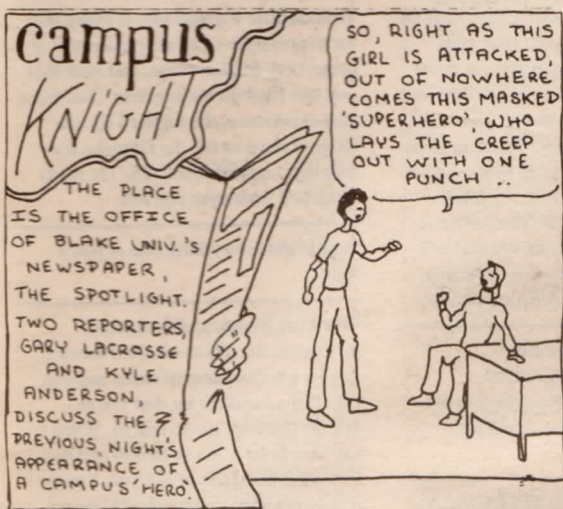 campus
KNIGHT
THE PLACE
IS THE OFFICE
OF BLAKE UNIV.'S
NEWSPAPER,
THE SPOTLIGHT.
TWO REPORTERS,
GARY LACROSSE
AND KYLE
ANDERSON,
DISCUSS THE
PREVIOUS, NIGHT'S
APPEARANCE OF
A CAMPUS 'HERO'.
SO, RIGHT AS THIS
GIRL IS ATTACKED,
OUT OF NOWHERE
COMES THIS MASKED
'SUPERHERO', WHO
LAYS THE CREEP
OUT WITH ONE
PUNCH ..